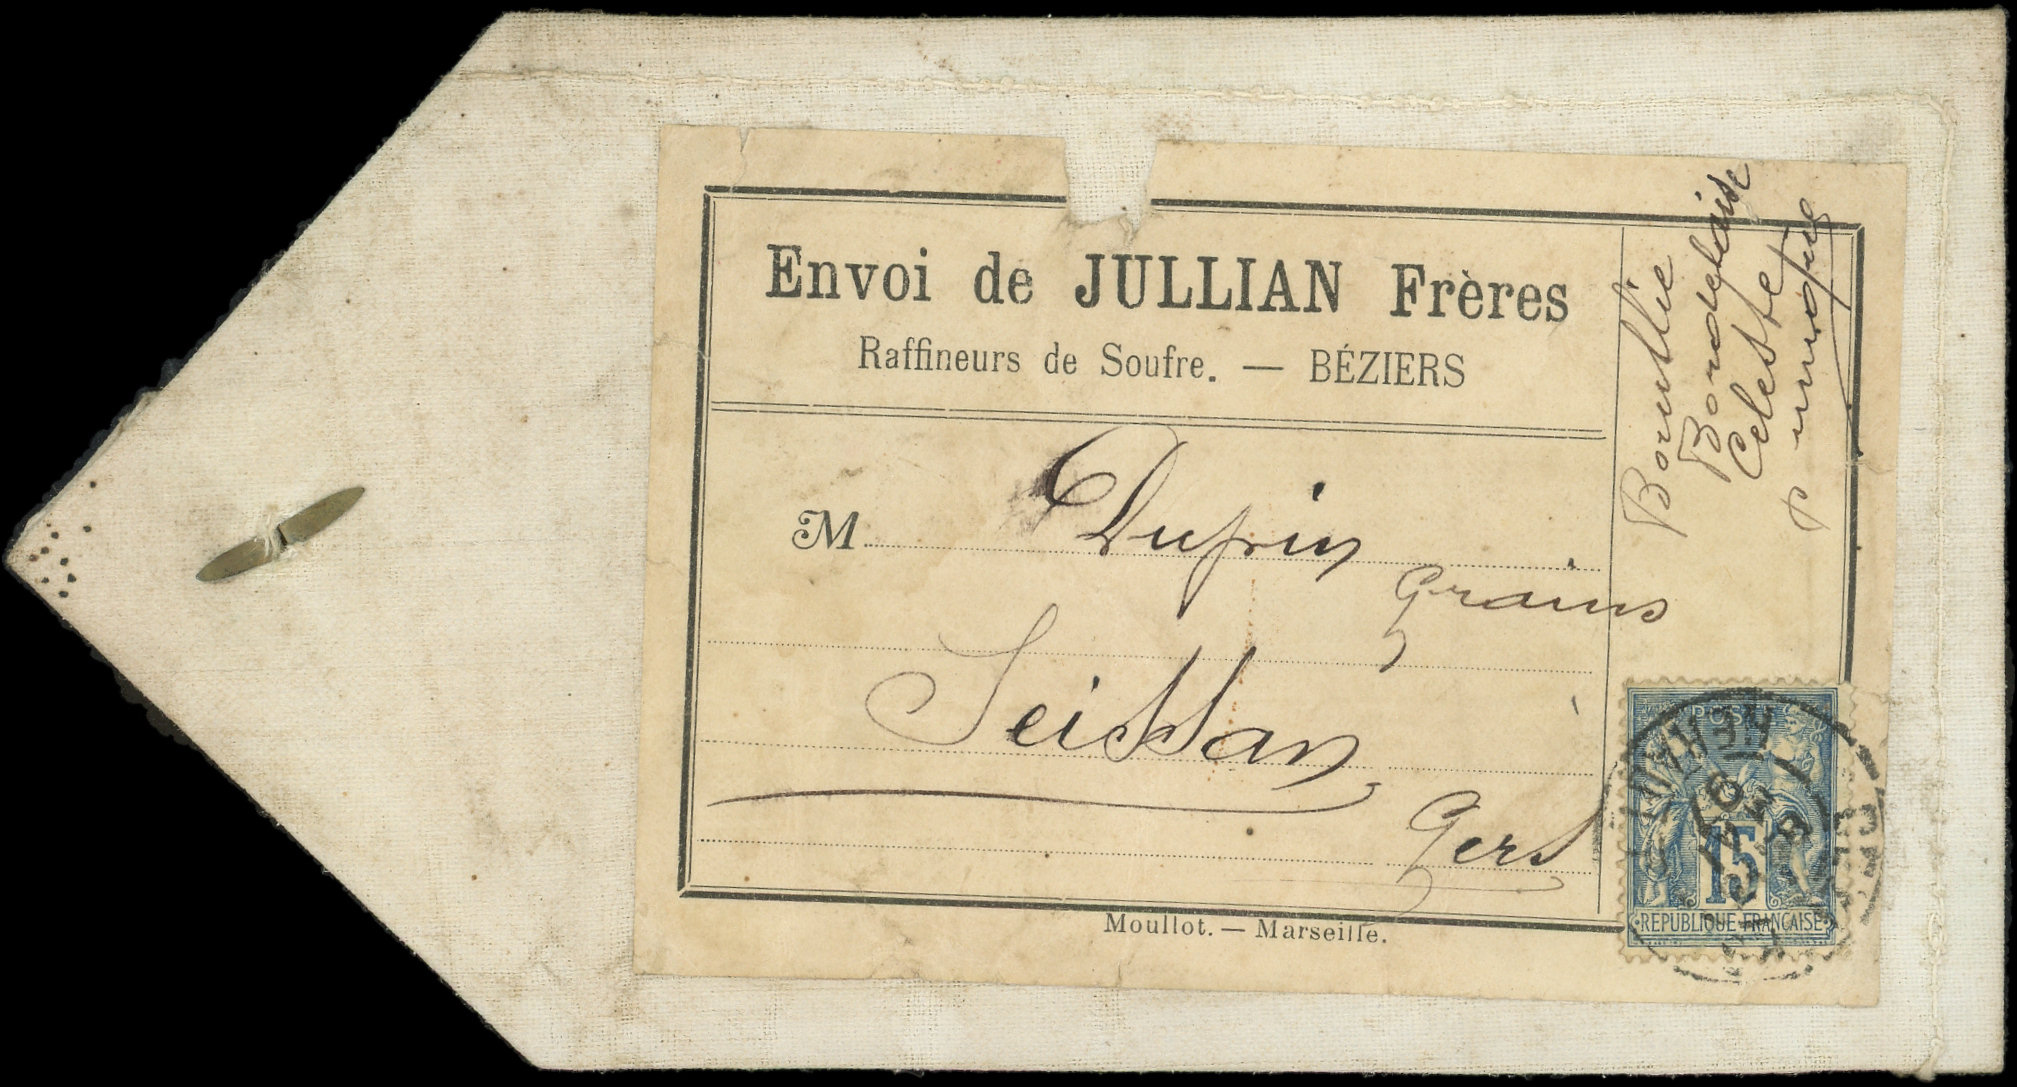 Envoi de JULLIAN Frères
Raffineurs de Soufre. — BÉZIERS
M Dupin
Grains
Seissan
Gers
Moullot. — Marseille.
Bouillie
Bordelaise
Celeste
POSTES
15
REPUBLIQUE FRANÇAISE